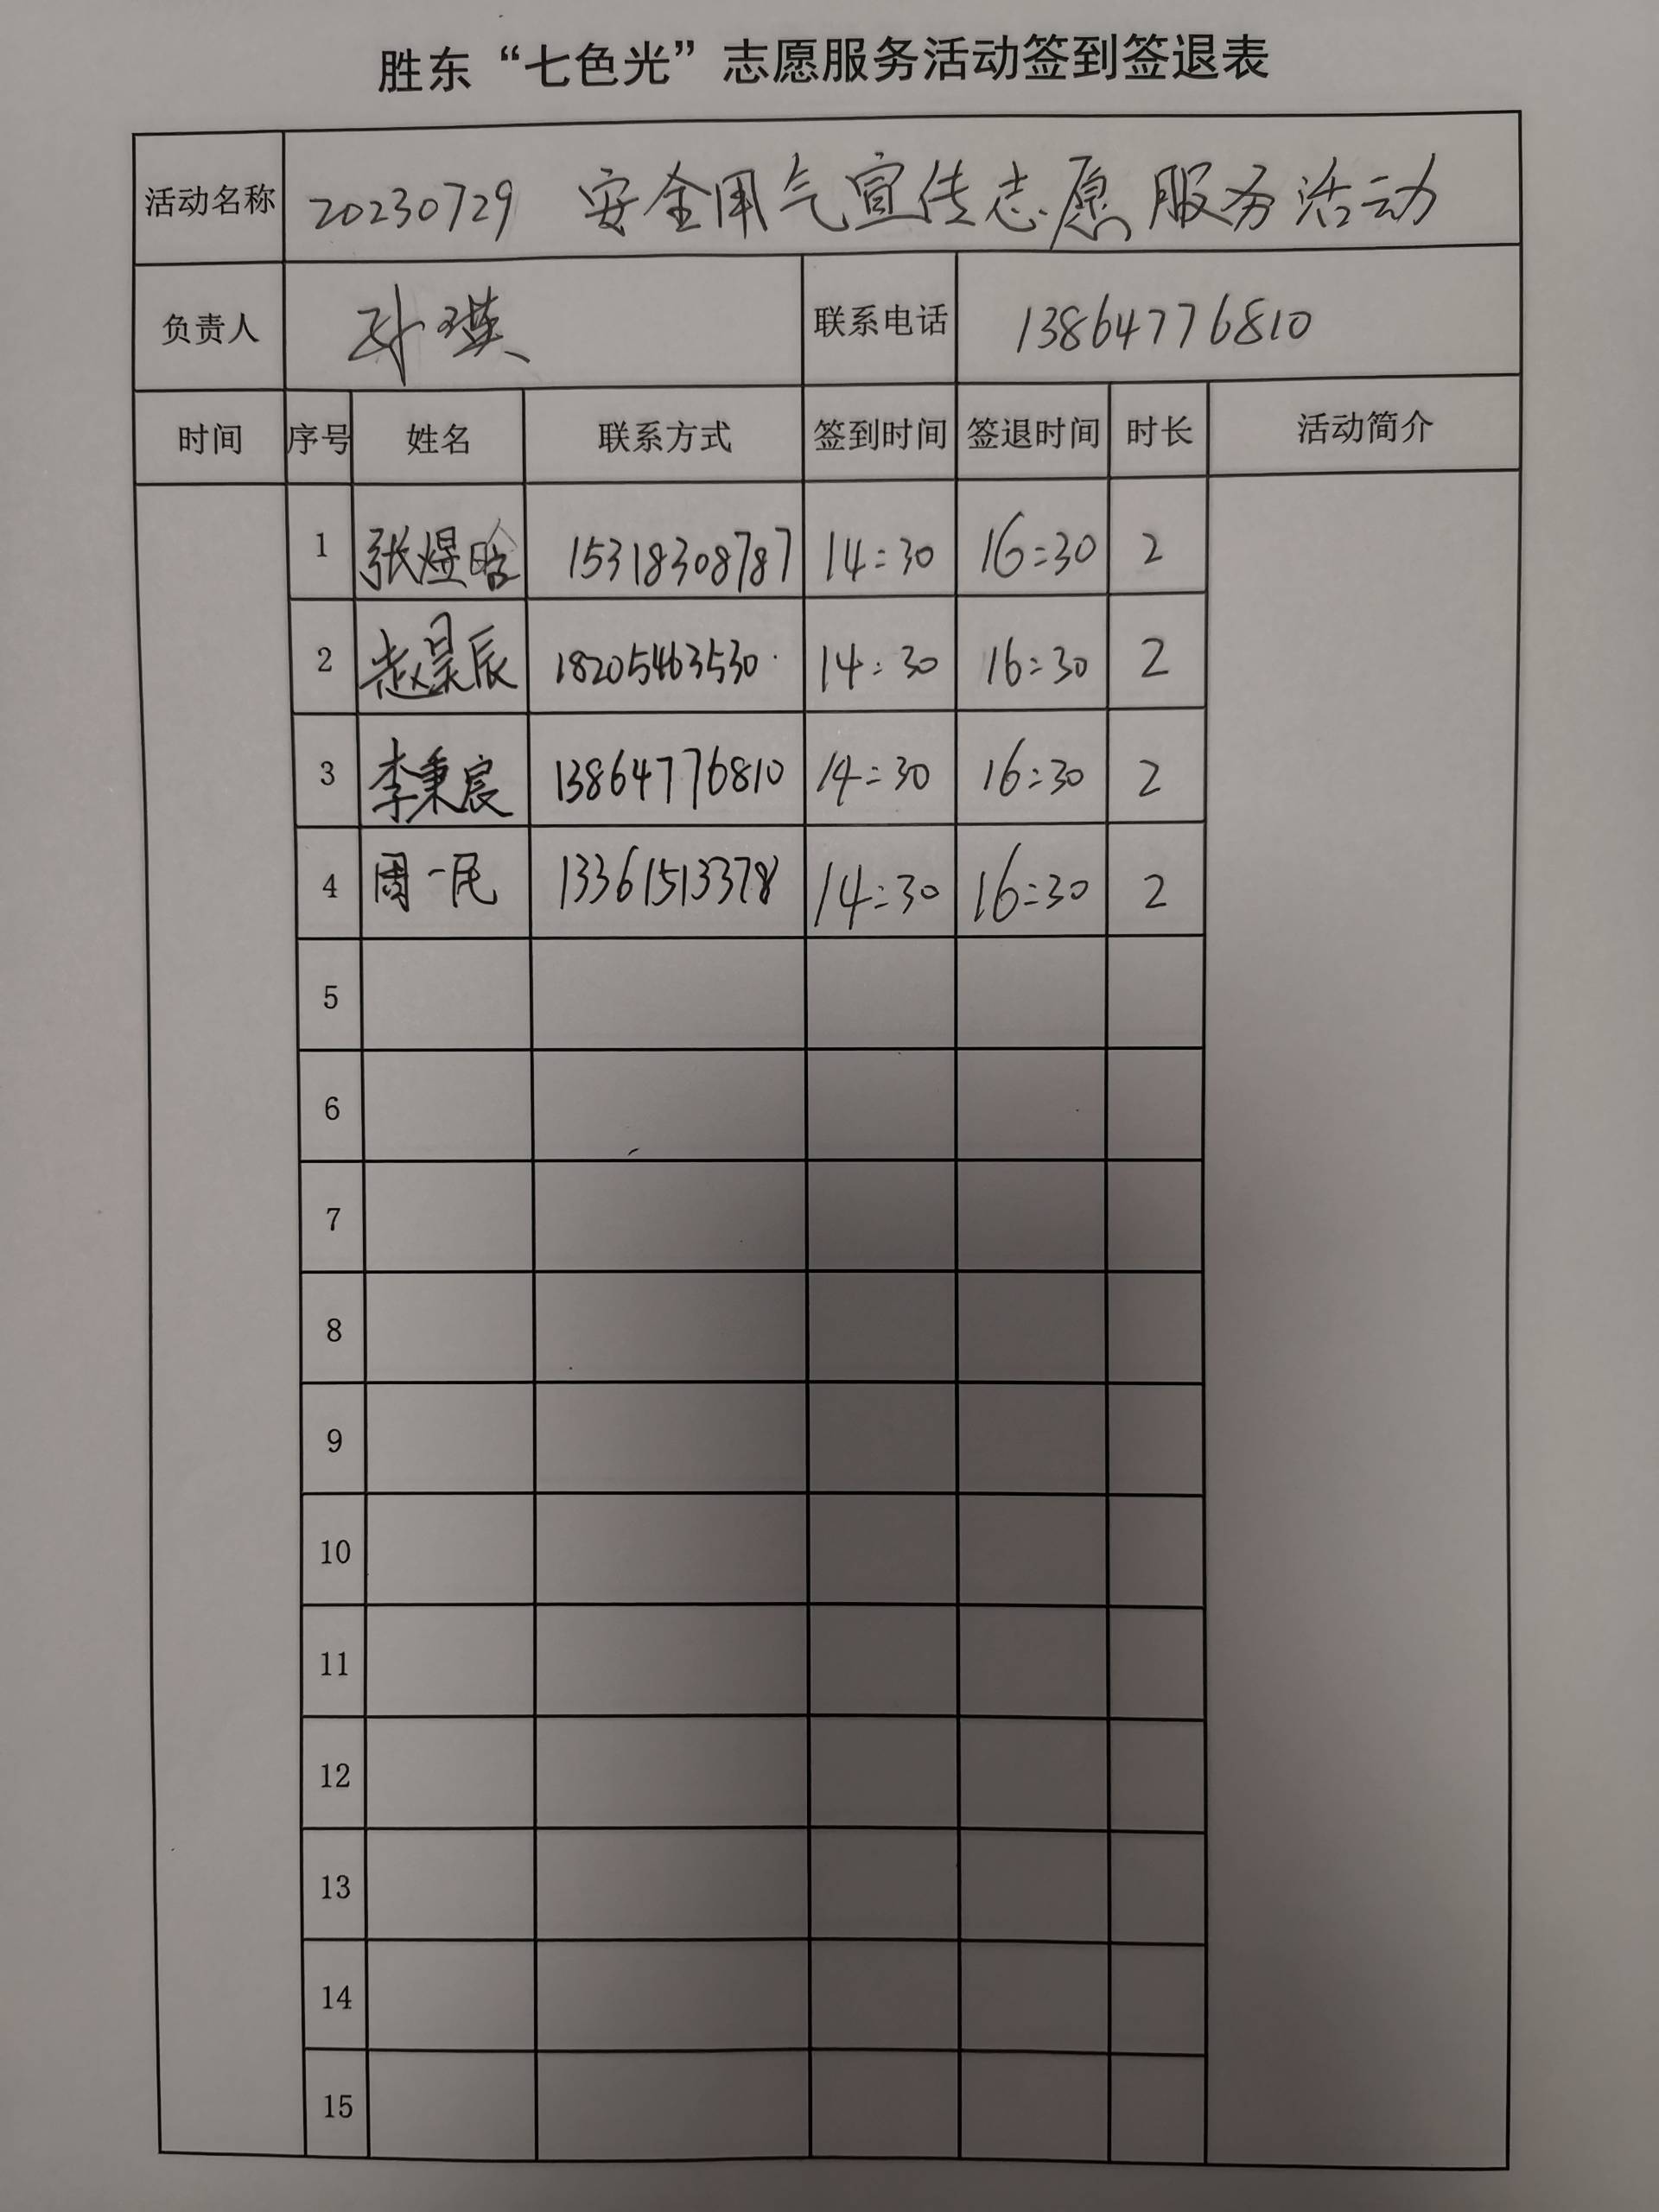 胜东“七色光”志愿服务活动签到签退表
活动名称 20230729 安全用气宣传志愿服务活动
负责人 孙瑛 联系电话 13864776810
时间 序号 姓名 联系方式 签到时间 签退时间 时长 活动简介
1 张煜晗 15318308787 14:30 16:30 2
2 赵昊辰 18205463530 14:30 16:30 2
3 李秉宸 13864776810 14:30 16:30 2
4 周一民 13361513378 14:30 16:30 2
5
6
7
8
9
10
11
12
13
14
15